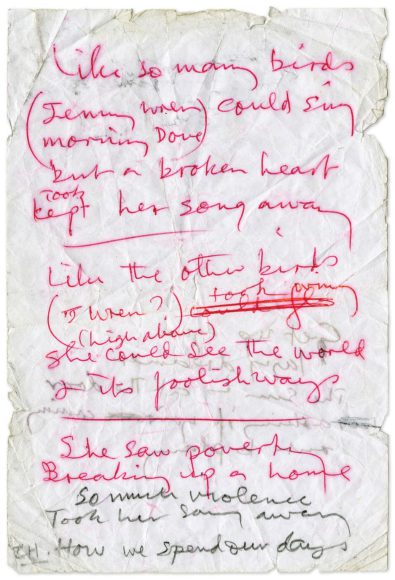 Like so many birds
(Jenny Wren) could sing
(morning Dove)
but a broken heart
Took
kept her song away
Like the other birds
(J Wren?) took wing
(high above)
She could see the world
& its foolish ways
She saw poverty
Breaking up a home
So much violence
Took her song away
CH. How we spend our days